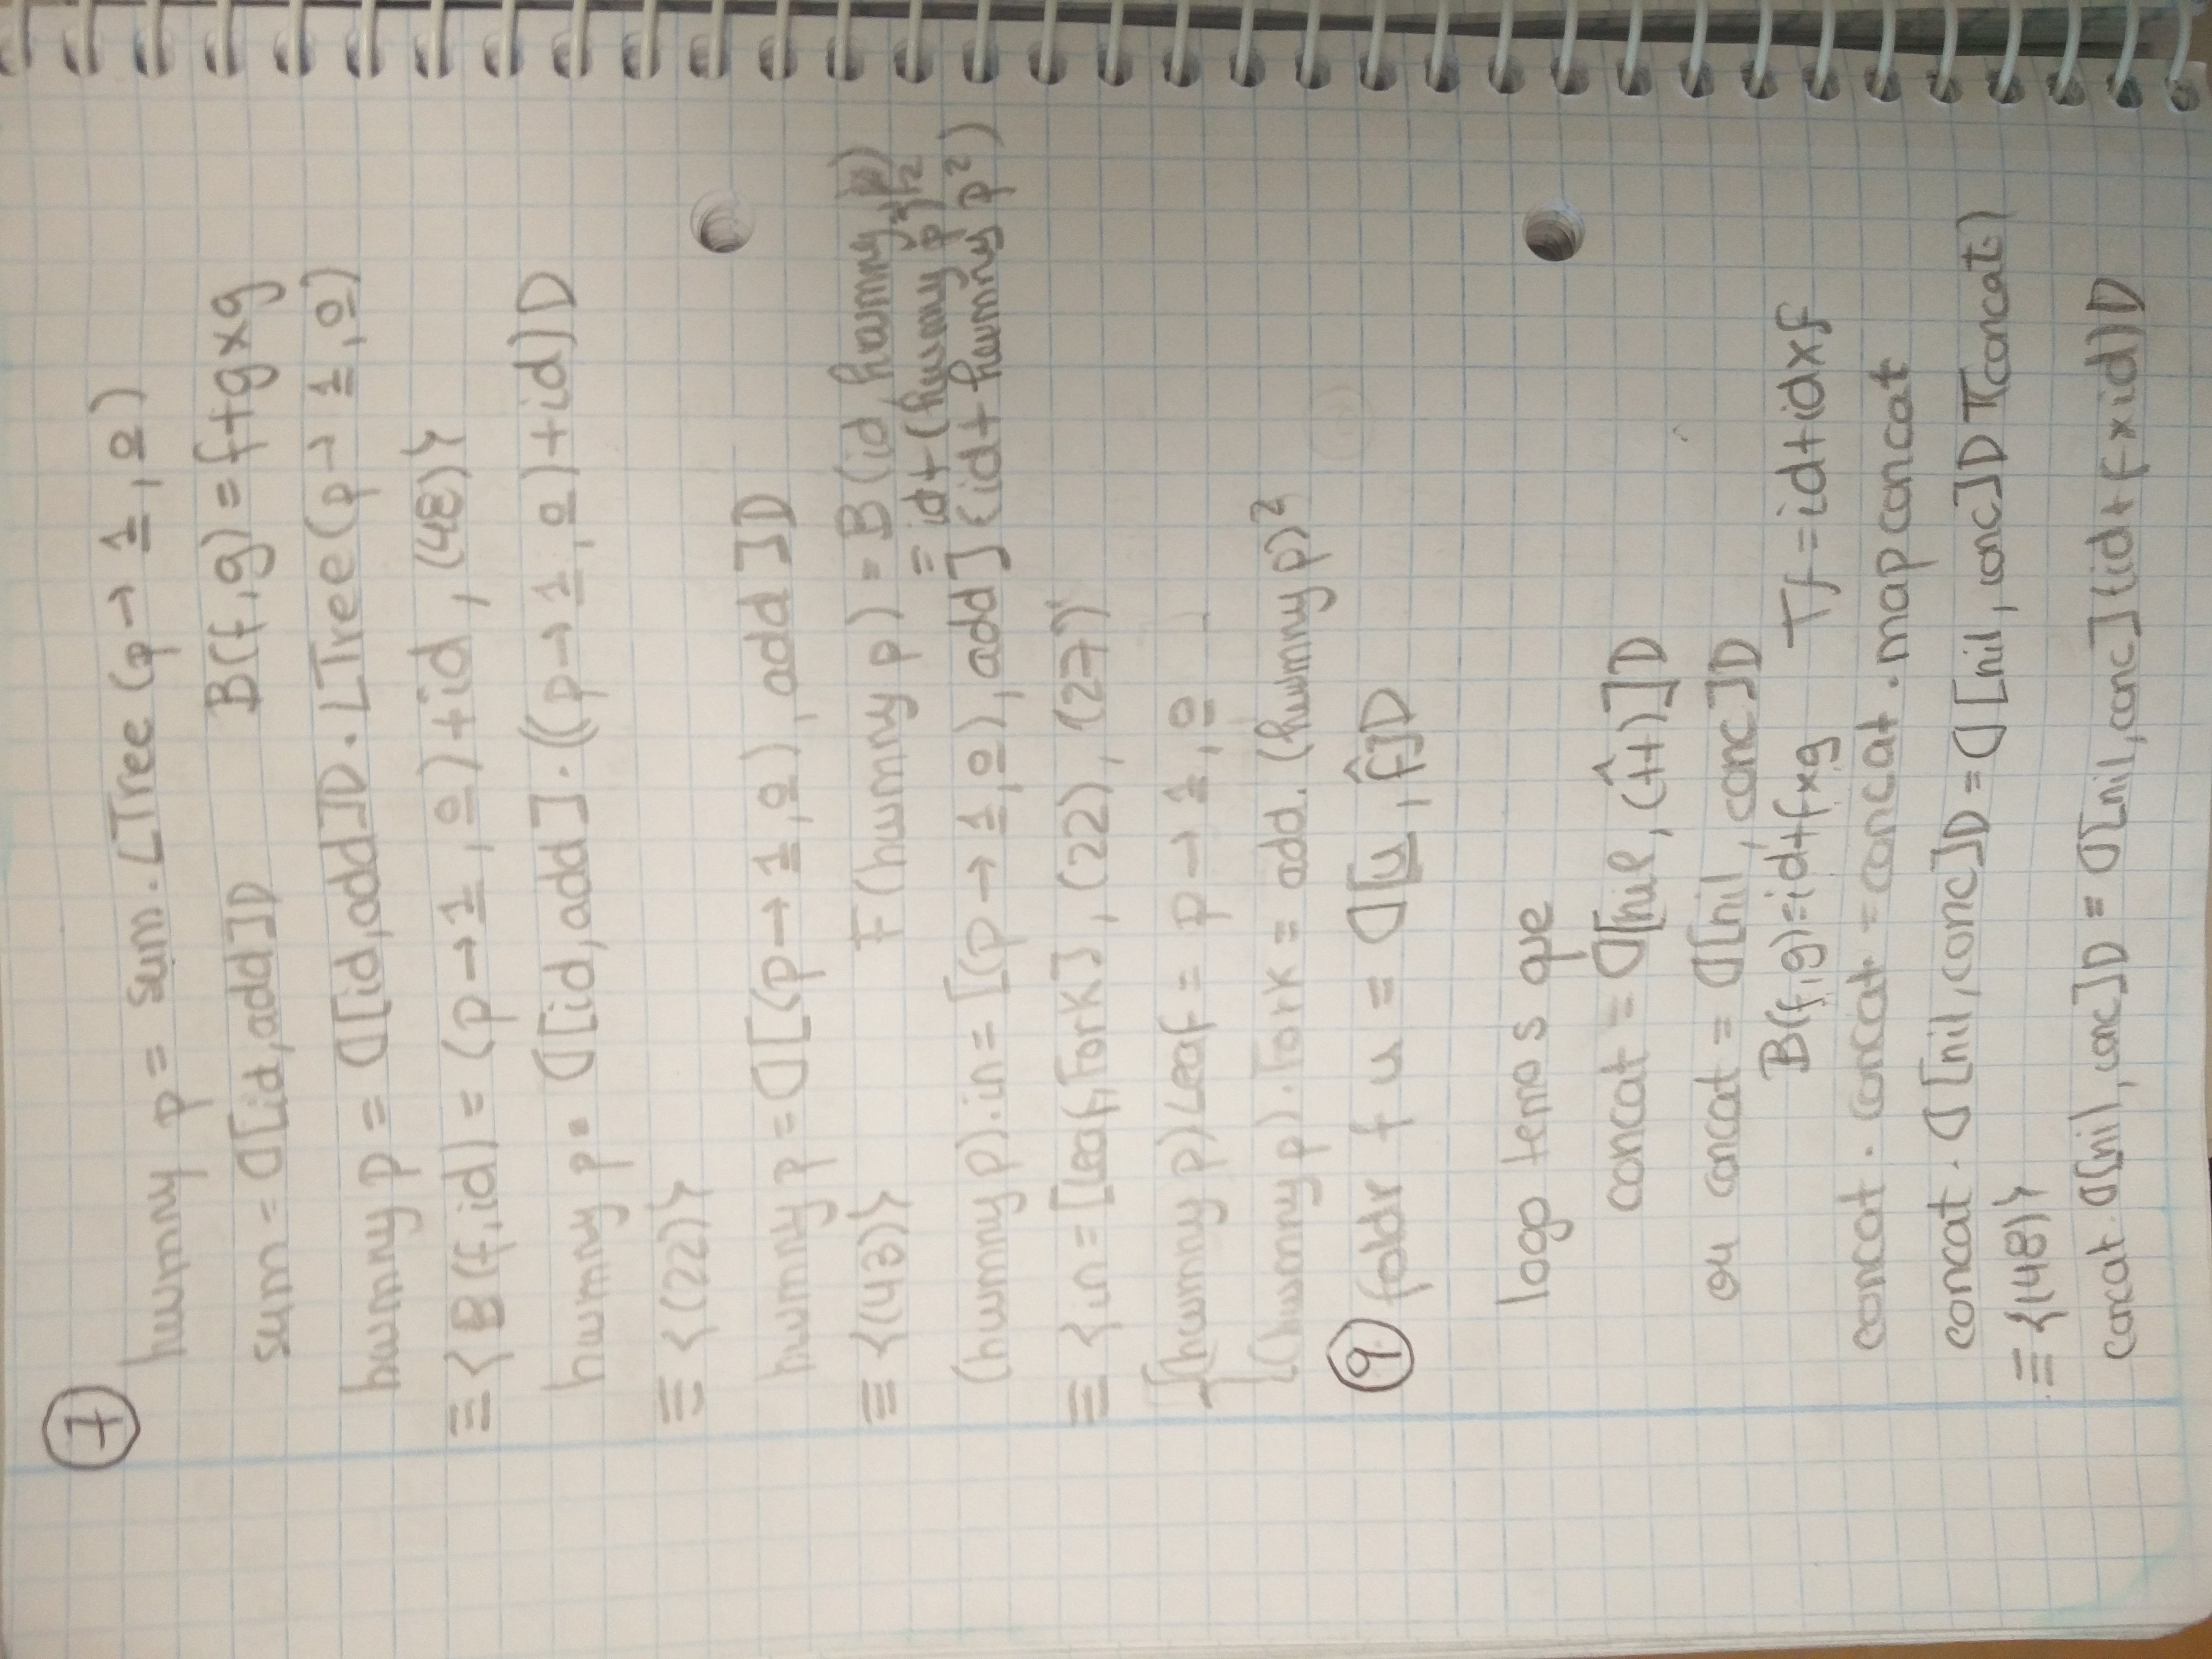 7
howmny p = sum . LTree (p → 1, 0)
sum = ⦇[id, add]⦈ B(f, g) = f + g × g
howmny p = ⦇[id, add]⦈ . LTree (p → 1, 0)
≡ { B(f, id) = (p → 1, 0) + id , (48) }
howmny p = ⦇[id, add] . ((p → 1, 0) + id)⦈
≡ {(22)}
howmny p = ⦇[(p → 1, 0), add]⦈
≡ {(43)} F(howmny p) = B(id, howmny p)
= id + (howmny p)²
(howmny p) . in = [(p → 1, 0), add] (id + howmny p²)
≡ { in = [Leaf, Fork], (22), (27)
{ (howmny p) Leaf = p → 1, 0
(howmny p) . Fork = add . (howmny p)²
9 foldr f u = ⦇[u, f̂]⦈
logo temos que
concat = ⦇[nil, (++)^]⦈
ou concat = ⦇[nil, conc]⦈
B(f, g) = id + f × g Tf = id + id × f
concat . concat = concat . map concat
concat . ⦇[nil, conc]⦈ = ⦇[nil, conc]⦈ T(concat)
≡ {(48)}
concat . ⦇[nil, conc]⦈ = ⦇[nil, conc] (id + f × id)⦈